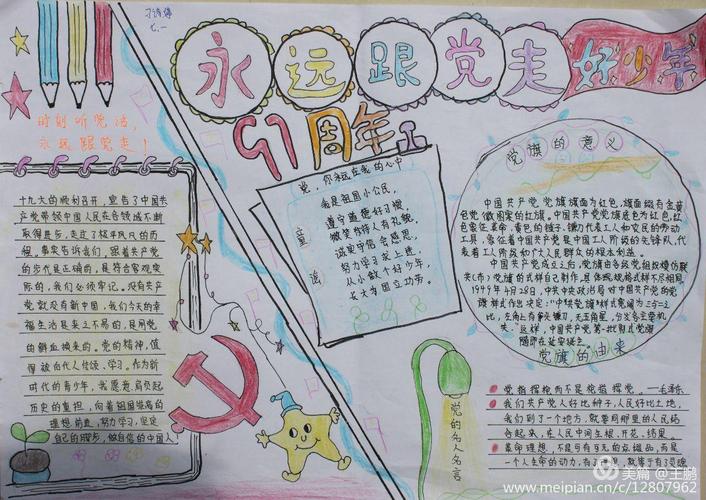 七.一
永远跟党走 好少年
91周年
时刻听党话,
永远跟党走!
十九大的顺利召开,宣告了中国共
产党带领中国人民在各领域不断
取得进步,走过了极平凡的历
程。事实告诉我们,跟着共产党
的步伐是正确的,是符合客观实
际的,我们必须牢记。没有共产
党就没有新中国,我们今天的幸
福生活是来之不易的,是用党
的鲜血换来的。党的精神,值
得被后代人传颂、学习。作为新
时代的青少年,我愿意肩负起
历史的重担,向着祖国繁荣的
理想前进,努力学习,坚定
自己的脚步,做自信的中国人
党,你永远在我的心中
童谣
我是祖国小公民,
遵守道德好习惯
微笑待人有礼貌,
诚实守信会感恩,
努力学习求上进,
从小做个好少年,
长大为国立功劳。
党旗的意义
中国共产党党旗旗面为红色,旗面缀有金黄
色党徽图案的红旗。中国共产党党旗底色为红色,红
色象征革命,黄色的锤子、镰刀代表工人和农民的劳动
工具,象征着中国共产党是中国工人阶级的先锋队,代
表着工人阶级和广大人民群众的根本利益。
中国共产党成立之后,党旗由各级党组织模仿联
共(布)党旗的样式自己制作,具体规格式样不尽相同。
1943年4月28日,中共中央政治局对中国共产党的党
旗样式作出决定:"中共党旗样式宽阔为三与二之
比,左角上有斧头镰刀,无五角星,
关。"这样,中国共产党第一批制式党旗
随即在延安诞生。
党旗的由来
党的名人名言
党指挥枪而不是枪指挥党。—毛泽东
我们共产党人好比种子,人民好比土地,
我们到了一个地方,就要同那里的人民结
合起来,在人民中间生根、开花、结果。
革命理想,不是可有可无的点缀品,而是
一个人生命的动力,有了理想,就等于有了灵魂
美篇 @王鹏
www.meipian.cn/c/12807962